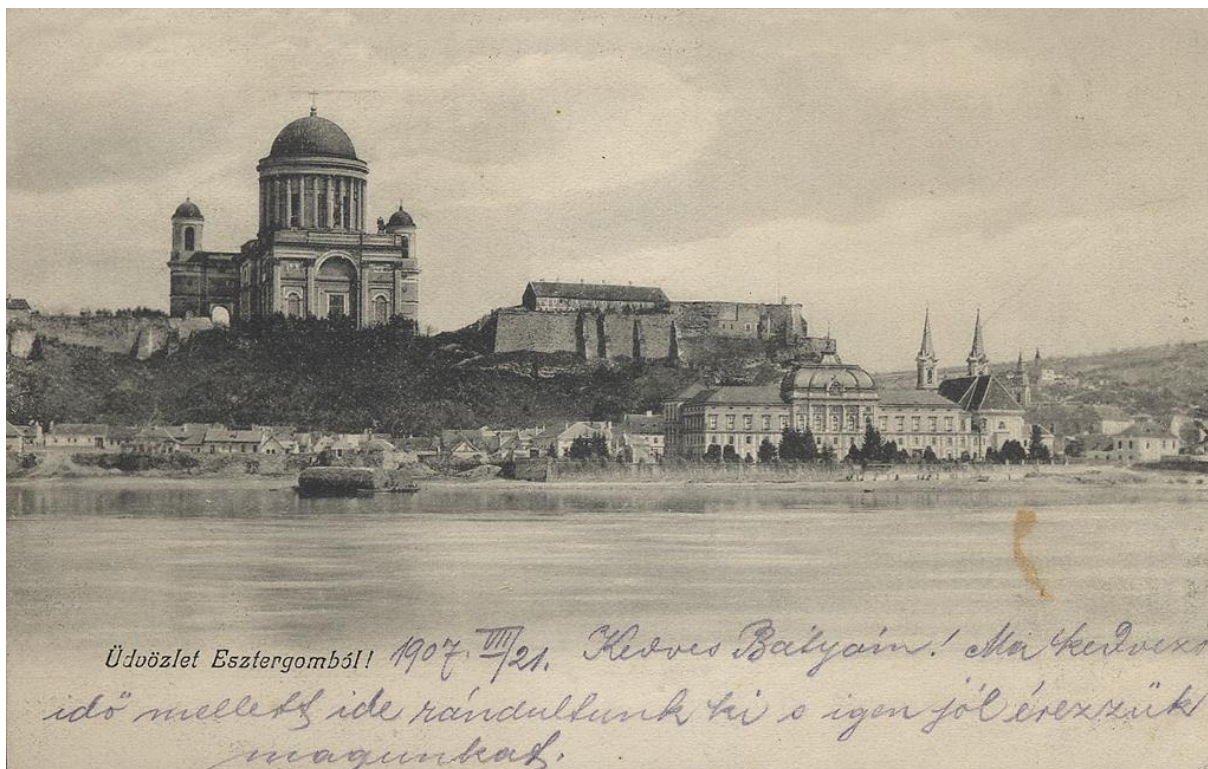 Üdvözlet Esztergomból! 1907. VIII/21. Kedves Bátyám! Ma kedvező
idő mellett ide rándultunk ki s igen jól érezzük
magunkat.